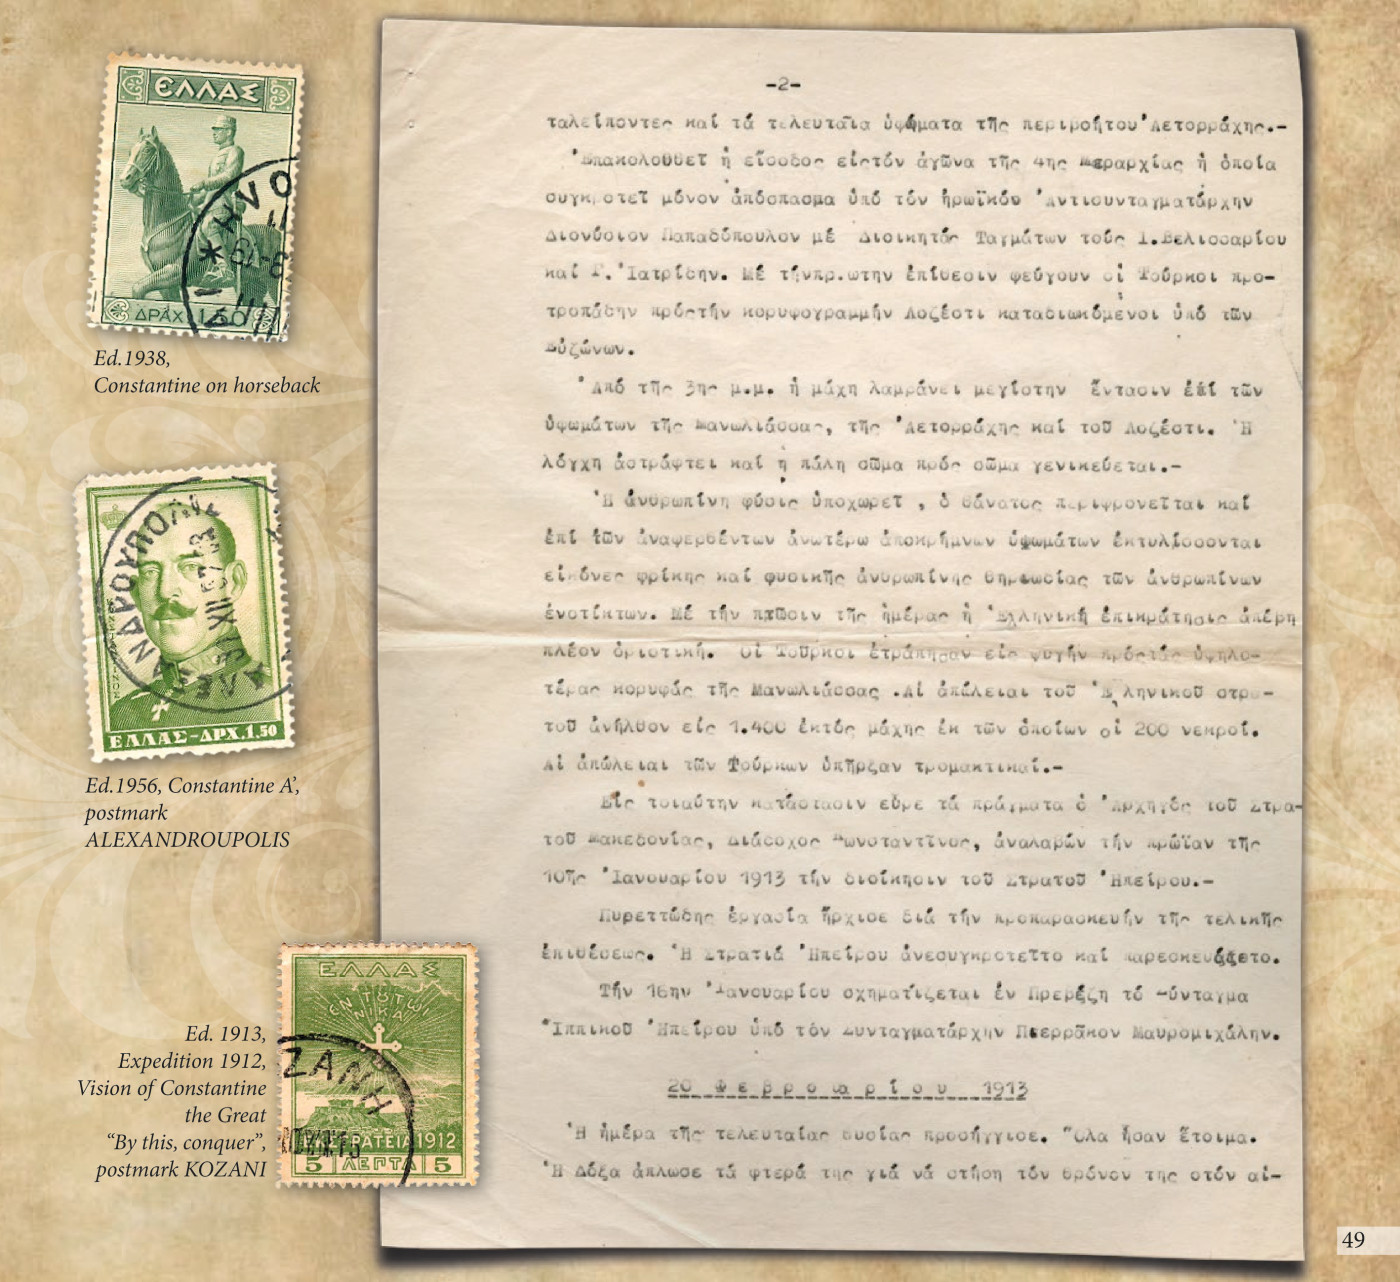 ΕΛΛΑΣ
ΔΡΑΧ. 1.50
Ed.1938,
Constantine on horseback
ΑΝΔΡΟΥΠΟΛΙΣ
ΕΛΛΑΣ-ΔΡΧ.1.50
Ed.1956, Constantine A',
postmark
ALEXANDROUPOLIS
ΕΛΛΑΣ
ΕΝ ΤΟΥΤΩι
ΝΙΚΑ
ΖΑΝΗ
1912
5 ΛΕΠΤΑ 5
Ed. 1913,
Expedition 1912,
Vision of Constantine
the Great
“By this, conquer”,
postmark KOZANI
-2-
ταλείποντες καί τά τελευταῖα ὑψώματα τῆς περιβοήτου Ἀετορράχης.-
Ἐπακολουθεῖ ἡ εἴσοδος είςτόν ἀγῶνα τῆς 4ης Μεραρχίας ἡ ὁποία
συγκροτεῖ μόνον ἀπόσπασμα ὑπό τόν ἡρωϊκόν Ἀντισυνταγματάρχην
Διονύσιον Παπαδόπουλον μέ Διοικητάς Ταγμάτων τούς Ι.Βελισσαρίου
καί Γ. Ἰατρίδην. Μέ τήνπρ.ωτην ἐπίθεσιν φεύγουν οἱ Τοῦρκοι προ-
τροπάδην πρόςτήν κορυφογραμμήν Λοζέστι καταδιωκόμενοι ὑπό τῶν
Εὐζώνων.
Ἀπό τῆς 3ης μ.μ. ἡ μάχη λαμβάνει μεγίστην ἔντασιν ἐπί τῶν
ὑψωμάτων τῆς Μανωλιάσσας, τῆς Ἀετορράχης καί τοῦ Λοζέστι. Ἡ
λόγχη ἀστράφτει καί ἡ πάλη σῶμα πρός σῶμα γενικεύεται.-
Ἡ ἀνθρωπίνη φύσις ὑποχωρεῖ , ὁ θάνατος περιφρονεῖται καί
ἐπί τῶν ἀναφερθέντων ἀνωτέρω ἀποκρήμνων ὑψωμάτων ἐκτυλίσσονται
εἰκόνες φρίκης καί φυσικῆς ἀνθρωπίνης θηριωδίας τῶν ἀνθρωπίνων
ἐνστίκτων. Μέ τήν πτῶσιν τῆς ἡμέρας ἡ Ἑλληνική ἐπικράτησις ἀπέβη
πλέον ὁριστική. Οἱ Τοῦρκοι ἐτράπησαν είς φυγήν πρόςτάς ὑψηλο-
τέρας κορυφάς τῆς Μανωλιάσσας .Αἱ ἀπώλειαι τοῦ Ἑλληνικοῦ στρα-
τοῦ ἀνῆλθον είς 1.400 ἐκτός μάχης ἐκ τῶν ὁποίων οἱ 200 νεκροί.
Αἱ ἀπώλειαι τῶν Τούρκων ὑπῆρξαν τρομακτικαί.-
Εἰς τοιαύτην κατάστασιν εὗρε τά πράγματα ὁ Ἀρχηγός τοῦ Στρα-
τοῦ Μακεδονίας, Διάδοχος Κωνσταντῖνος, ἀναλαβών τήν πρώϊαν τῆς
10ης Ἰανουαρίου 1913 τήν διοίκησιν τοῦ Στρατοῦ Ἠπείρου.-
Πυρεττώδης ἐργασία ἤρχισε διά τήν προπαρασκευήν τῆς τελικῆς
ἐπιθέσεως. Ἡ Στρατιά Ἠπείρου ἀνεσυγκροτεῖτο καί παρεσκευάζετο.
Τήν 16ην Ἰανουαρίου σχηματίζεται ἐν Πρεβέζη τό Σύνταγμα
Ἱππικοῦ Ἠπείρου ὑπό τόν Συνταγματάρχην Πιερρᾶκον Μαυρομιχάλην.
20 Φεβρουαρίου 1913
Ἡ ἡμέρα τῆς τελευταίας θυσίας προσήγγισε. Ὅλα ἦσαν ἕτοιμα.
Ἡ Δόξα ἅπλωσε τά φτερά της γιά νά στήση τόν θρόνον της στόν αἱ-
49